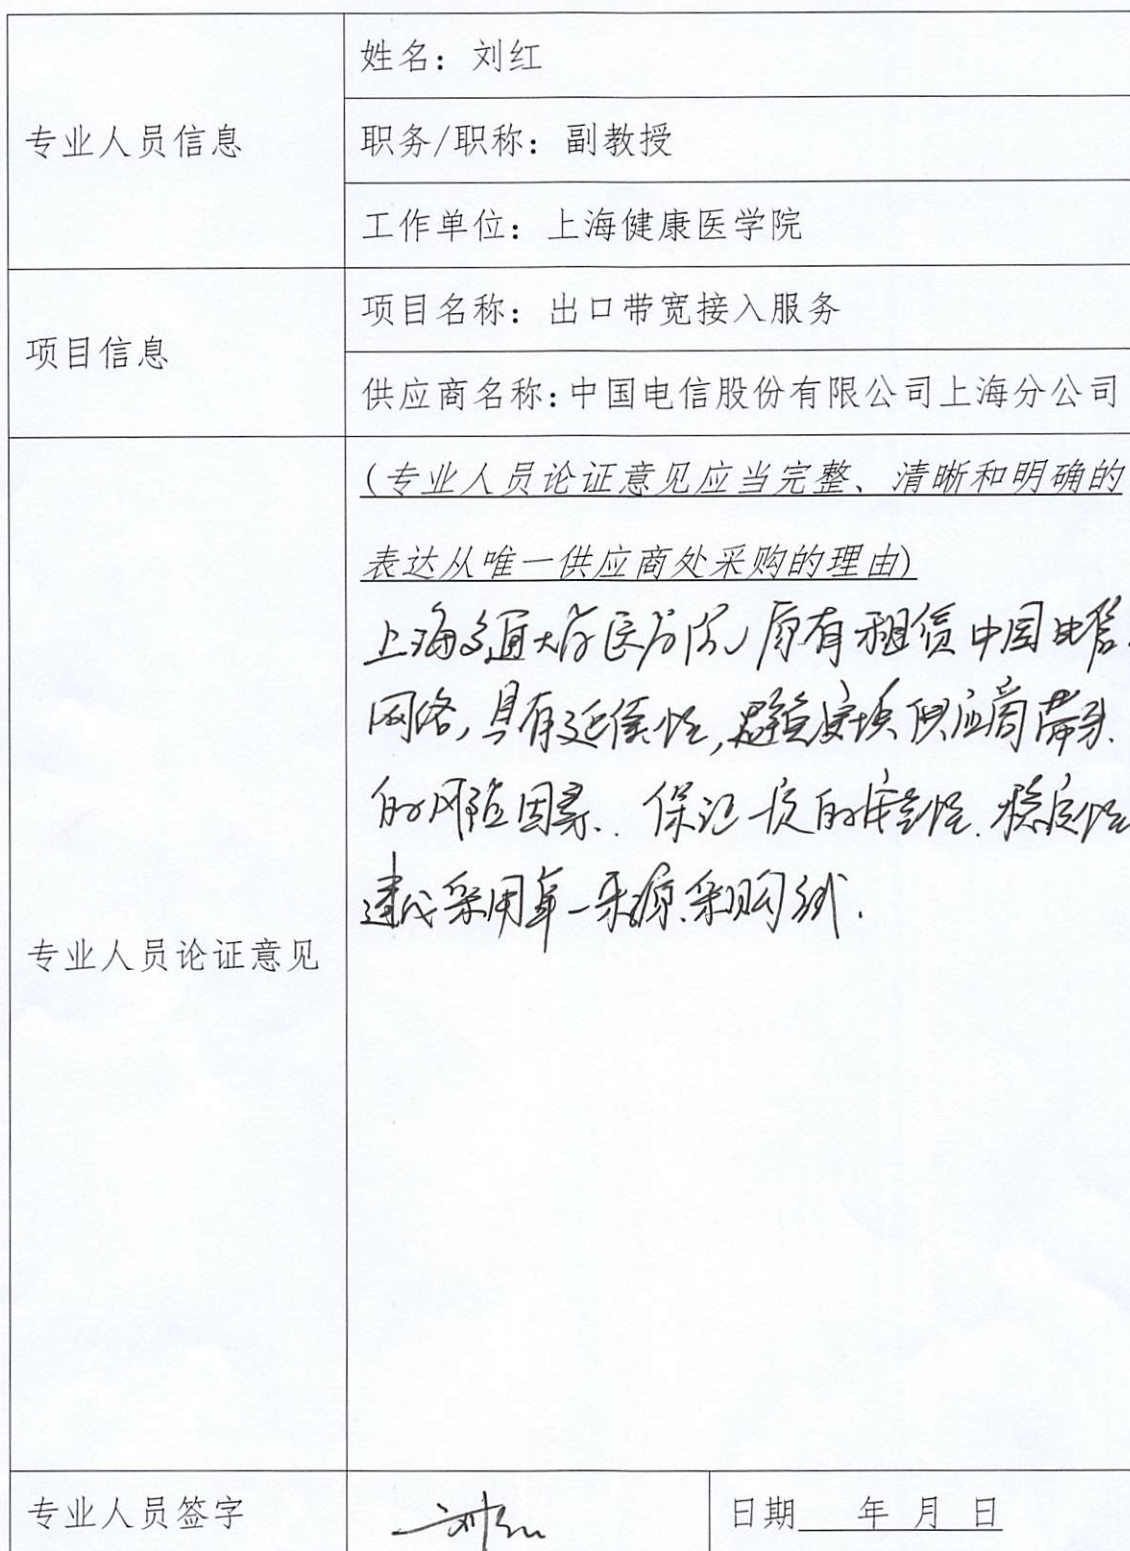 专业人员信息
姓名：刘红
职务/职称：副教授
工作单位：上海健康医学院
项目信息
项目名称：出口带宽接入服务
供应商名称:中国电信股份有限公司上海分公司
专业人员论证意见
(专业人员论证意见应当完整、清晰和明确的
表达从唯一供应商处采购的理由)
上海交通大学医学院原有租赁中国电信
网络,具有延续性,避免更换供应商带来
的风险因素.保证一定的安全性.稳定性
建议采用单一来源采购
专业人员签字
刘红
日期 年 月 日